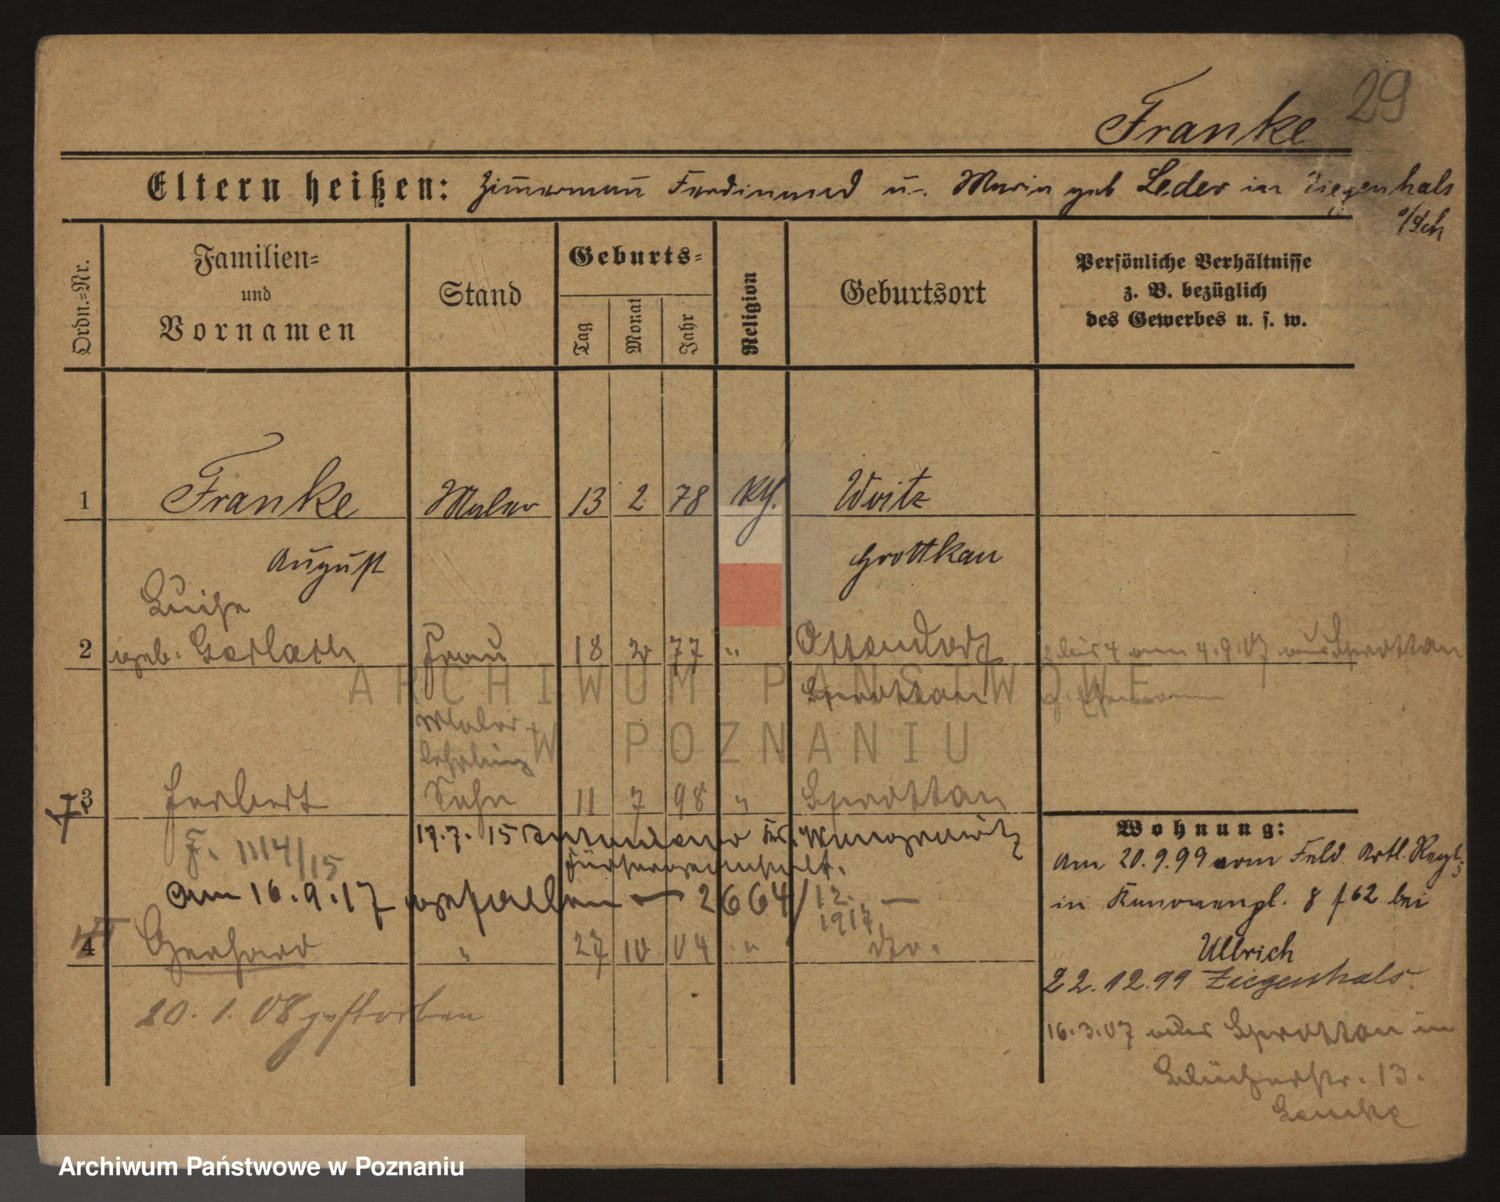 29
Franke
Eltern heißen: Zimmermann Ferdinand u. Maria geb Leder in Ziegenhals
o/Sch
Ordn.-Nr.
Familien-
und
Vornamen
Stand
Geburts-
Tag
Monat
Jahr
Religion
Geburtsort
Persönliche Verhältnisse
z. B. bezüglich
des Gewerbes u. s. w.
1 Franke Maler 13 2 78 kth. Woitz
August Grottkau
Luise
2 geb. Gerlach Frau 18 2 77 " Ottendorf 2 bis 4 am 4.9.07 aus Sprottau
Sprottau
Maler
Lehrling
3 Herbert Sohn 11 7 98 " Sprottau
F. 1114/15
17.7.15
Fürsorgeanstalt.
Am 16.9.17 gefallen — 2664/12. —
1917.
4 Gerhard " 27 10 04 " do.
20.1.08 gestorben
Wohnung:
Am 20.9.99 vom Feld Artl. Regt.
in 8 f 62 bei
Ullrich
22.12.99 Ziegenhals.
16.3.07 aus Sprottau in
Blücherstr. 13.
ARCHIWUM PAŃSTWOWE
W POZNANIU
Archiwum Państwowe w Poznaniu